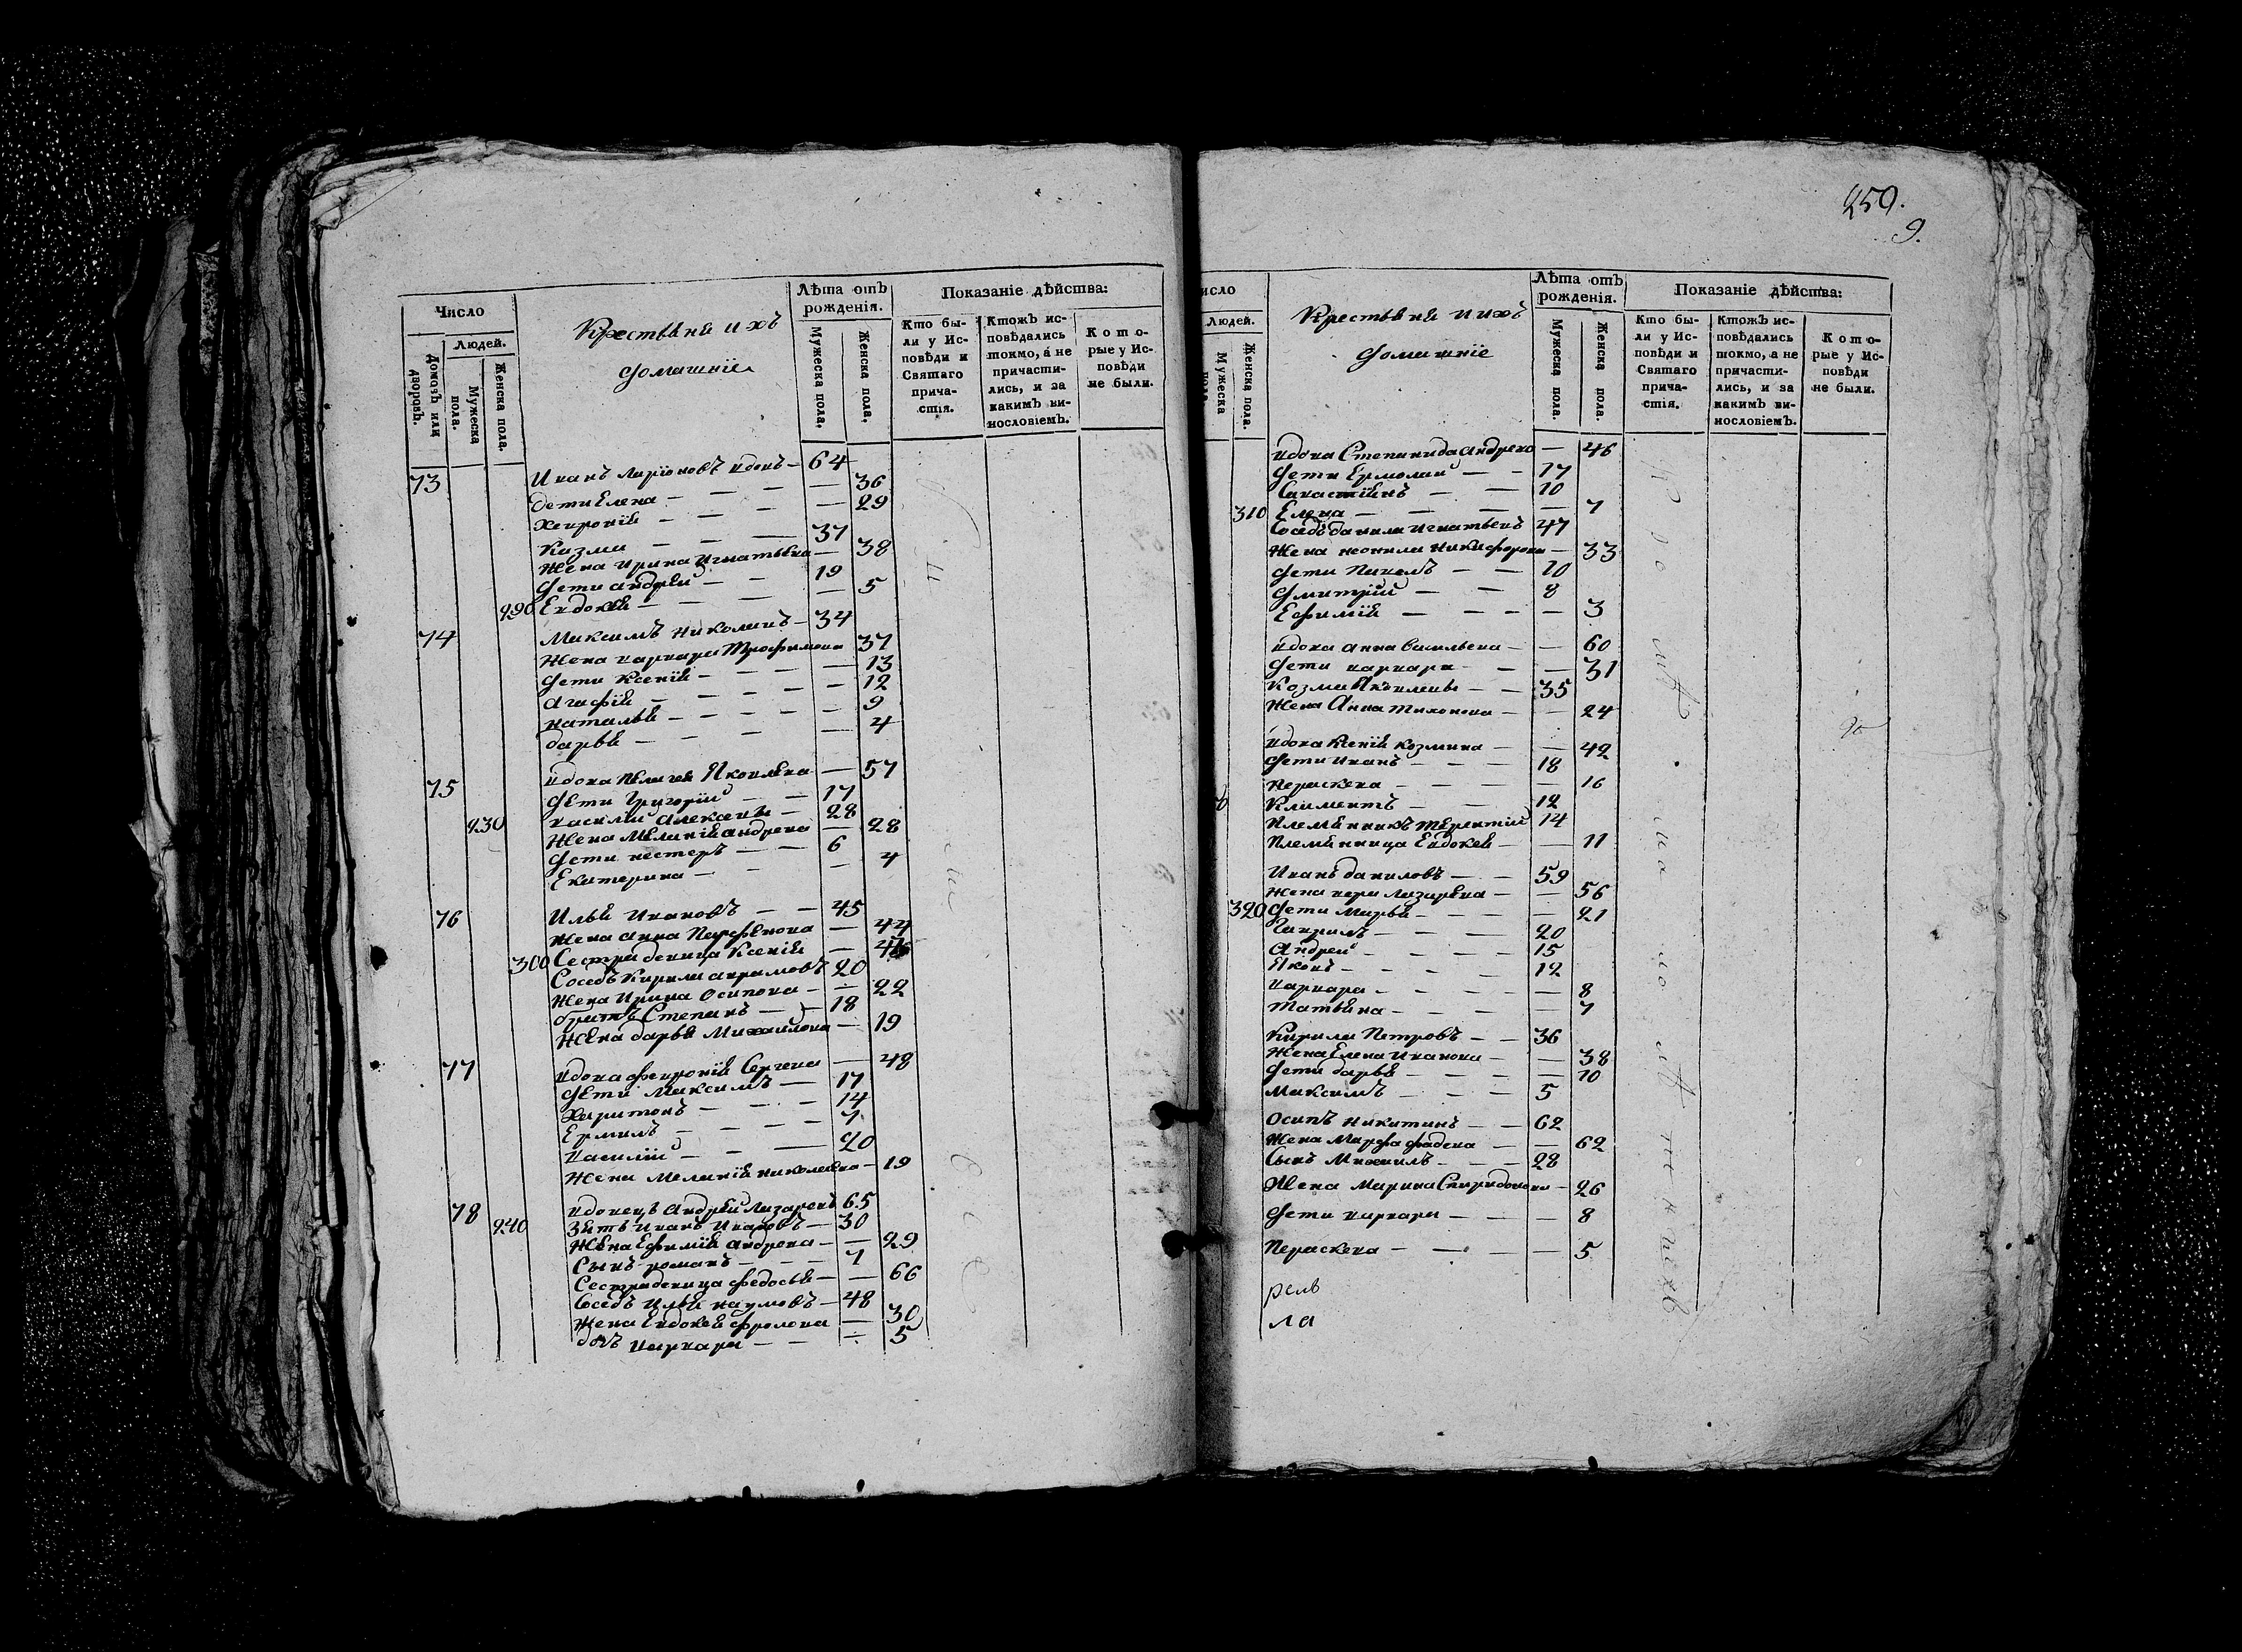 Число
Людей.
Домовъ или дворовъ.
Мужеска пола.
Женска пола.
Крестьяня ихъ
домашніе
Лѣта отъ рожденія.
Мужеска пола.
Женска пола.
Показаніе дѣйства:
Кто бы-
ли у Ис-
повѣди и
Святаго
прича-
стія.
Ктожъ ис-
повѣдались
токмо, а не
причасти-
лись, и за
какимъ ви-
нословіемъ.
Кото-
рые у Ис-
повѣди
не были.
73 Иванъ Ларіоновъ вдовъ — 64
дети Елена — — — — 36
— — — — 29
Казма — — — 37
Жена Ирина Игнатьева — 38
дети андрей — — 19
290 Евдокея — — — — 5
74 Максимъ Николаивъ — 34
Жена варвара Трофимова 37
дети Ксенія — — — — 13
агафія — — — — — 12
наталья — — — — — 9
дарья — — — — 4
75 вдова Пелагея Яковлева — 57
дети Григорій — — 17
230 василій алексеевъ — 28
Жена Меланія андреева — 28
дети нестеръ — — 6
Екатерина — — — 4
76 Илья Ивановъ — — 45
Жена анна Парфенова — 44
300 Сестра девица Ксенія —
Соседъ Кирила аврамовъ 20
Жена Ирина Осипова — — 22
братъ Степанъ — — 18
Жена дарья Михаилова — 19
77 вдова февронія Сергеева — 48
дети Максимъ — 17
Харитонъ — — — 14
Ермилъ — — — — 7
василій — — — 20
Жена Меланія николаева — 19
78 вдовецъ Андрей Лазаревъ 65
240 Зять Иванъ Ивановъ — 30
Жена Ефимія андреева — — 29
Сынъ романъ — — — 7
Сестра девица федосья — — 66
Соседъ Илья наумовъ — 48
Жена Евдокея фролова — 30
дочь варвара — — — 5
259.
9.
исло
Людей.
Мужеска пола.
Женска пола.
Крестьяня ихъ
домашніе
Лѣта отъ рожденія.
Мужеска пола.
Женска пола.
Показаніе дѣйства:
Кто бы-
ли у Ис-
повѣди и
Святаго
прича-
стія.
Ктожъ ис-
повѣдались
токмо, а не
причасти-
лись, и за
какимъ ви-
нословіемъ.
Кото-
рые у Ис-
повѣди
не были.
вдова Степанида андреева — 46
дети Ермолай — — 17
Савастіянъ — — 10
310 Елена — — — — 7
Соседъ данила Игнатьевъ 47
Жена неонила никифорова — 33
дети Павелъ — — 10
дмитрій — — 8
Ефимія — — — — 3
вдова анна васильева — — 60
дети варвара — — 31
Козма — — 35
Жена Анна тихонова — — 24
вдова Ксенія козмина — — 42
дети Иванъ — — — 18
Параскева — — — — — 16
Климентъ — — 12
Племянникъ терентій 14
Племянница Евдокея — — 11
Иванъ даниловъ — — 59
Жена вера Лазарева — — 56
320 дети Марья — — — — 21
Гаврилъ — — — 20
Андрей — — — — 15
Яковъ — — — — 12
варвара — — — — — 8
татьяна — — — — 7
Кирила Петровъ — — 36
Жена Елена Иванова — — 38
дети дарья — — — — 10
максимъ — — — 5
осипъ никитинъ — — 62
Жена Марфа фадеева — — 62
Сынъ Михаилъ — — — 28
Жена Марина Спиридонова — 26
дети варвара — — — 8
Параскева — — — — 5
ла